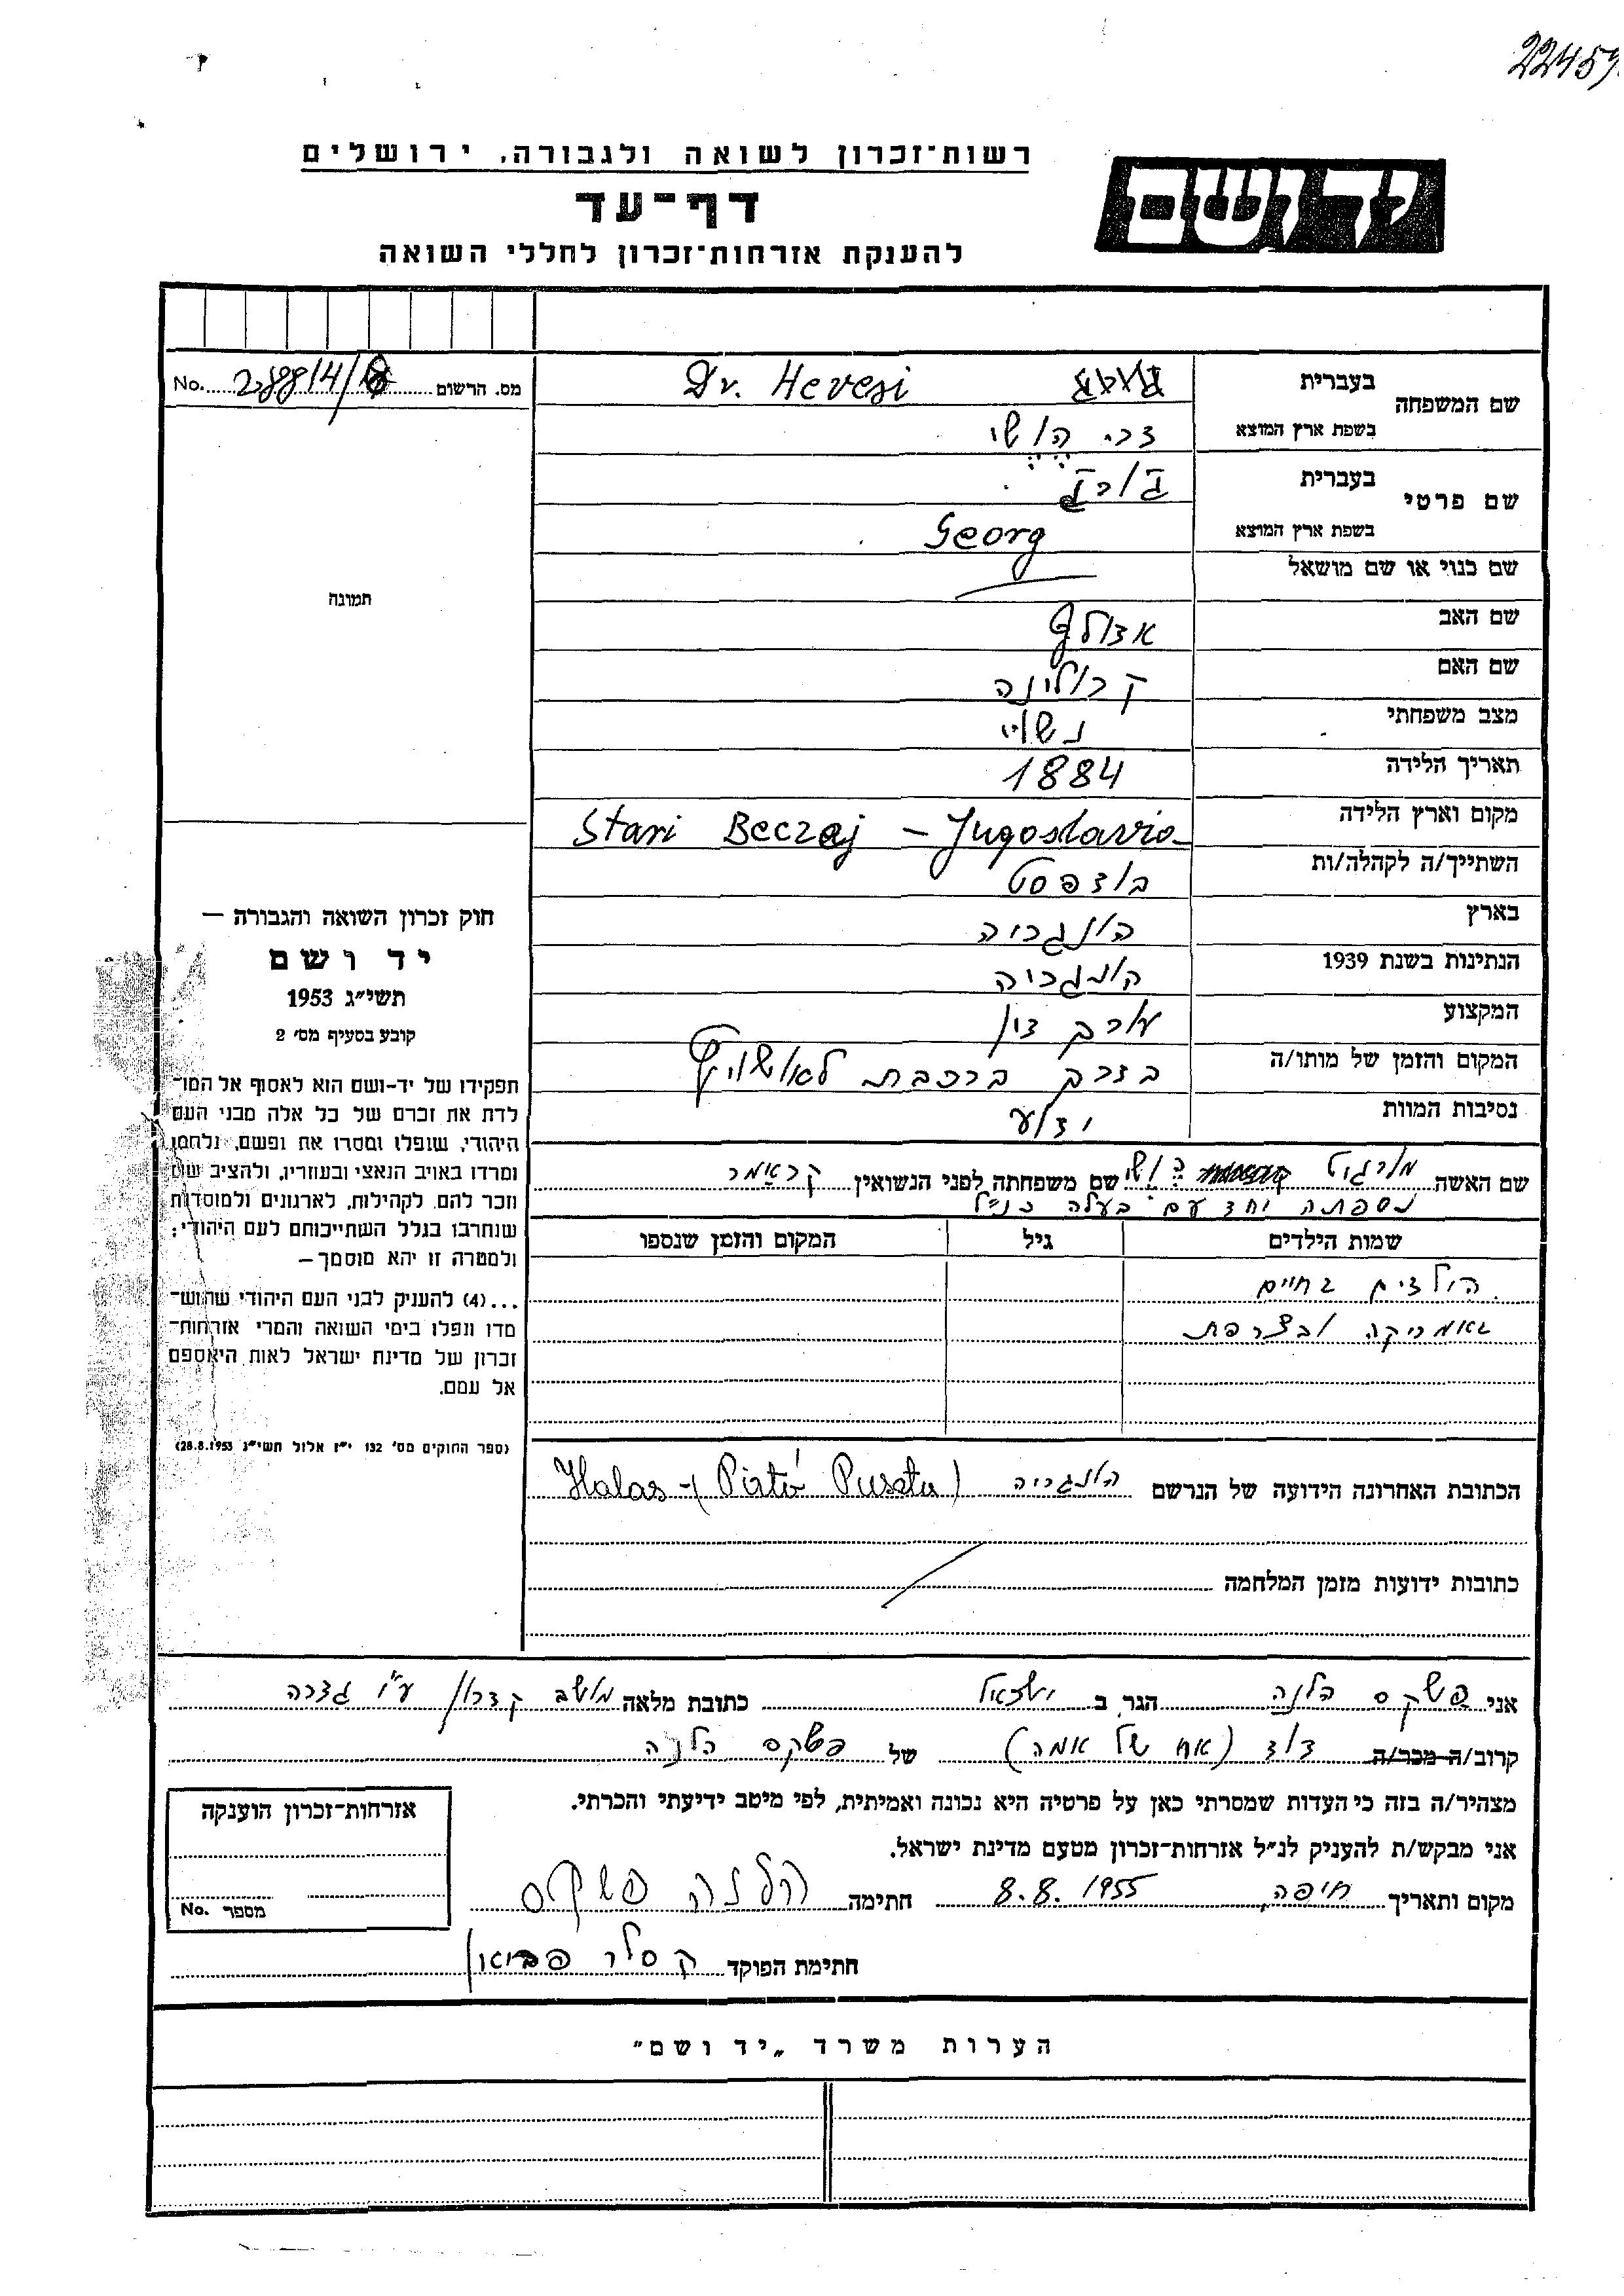 22459
רשות־זכרון לשואה ולגבורה, ירושלים
ידושם
דף־עד
להענקת אזרחות־זכרון לחללי השואה
שם המשפחה בעברית Dr. Hevesi
בשפת ארץ המוצא דר. הושי
שם פרטי בעברית
בשפת ארץ המוצא Georg
שם כנוי או שם מושאל
שם האב אדולף
שם האם קרולינה
מצב משפחתי נשוי
תאריך הלידה 1884
מקום וארץ הלידה Stari Beczej – Jugoslavia
השתייך/ה לקהלה/ות בודפסט
בארץ הונגריה
הנתינות בשנת 1939 הונגריה
המקצוע עורך דין
המקום והזמן של מותו/ה בדרך ברכבת לאושויץ
נסיבות המוות ידוע
מס. הרשום No. 28814/
תמונה
חוק זכרון השואה והגבורה —
יד ושם
תשי״ג 1953
קובע בסעיף מס׳ 2
תפקידו של יד־ושם הוא לאסוף אל המו־
לדת את זכרם של כל אלה מבני העם
היהודי, שנפלו ומסרו את נפשם, נלחמו
ומרדו באויב הנאצי ובעוזריו, ולהציב שם
וזכר להם, לקהילות, לארגונים ולמוסדות
שנחרבו בגלל השתייכותם לעם היהודי;
ולמטרה זו יהא מוסמך —
...(4) להעניק לבני העם היהודי שהוש־
מדו ונפלו בימי השואה והמרי אזרחות־
זכרון של מדינת ישראל לאות היאספם
אל עמם.
(ספר החוקים מס׳ 132 י״ז אלול תשי״ג 28.8.1953)
שם האשה מרגיט הושי שם משפחתה לפני הנשואין קראמר
נספתה יחד עם בעלה כנ״ל
שמות הילדים גיל המקום והזמן שנספו
הילדים בחיים
באמריקה ובצרפת
הכתובת האחרונה הידועה של הנרשם הונגריה Halas – (Pirtó Puszta)
כתובות ידועות מזמן המלחמה
אני פשקס הלנה הגר ב ישראל כתובת מלאה מושב קדרון ע״י גדרה
קרוב/ה מכר/ה דוד (אח של אמה) של פשקס הלנה
מצהיר/ה בזה כי העדות שמסרתי כאן על פרטיה היא נכונה ואמיתית, לפי מיטב ידיעתי והכרתי.
אני מבקש/ת להעניק לנ״ל אזרחות־זכרון מטעם מדינת ישראל.
מקום ותאריך חיפה, 8.8.1955 חתימה הלנה פשקס
חתימת הפוקד קסלר
אזרחות־זכרון הוענקה
מספר No.
הערות משרד „יד ושם״